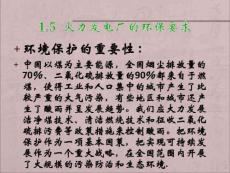 1.5 火力发电厂的环保要求
环境保护的重要性：
中国以煤为主要能源，全国烟尘排放量的
70%、二氧化硫排放量的90%都来自于燃
煤，使得工业和人口集中的城市产生了比
较严重的大气污染，有些地区和城市还产
生了酸雨并呈发展趋势。我们应大力发展
洁净煤技术、清洁燃烧技术和征收二氧化
硫排污费等政策措施来控制酸雨。把环境
保护作为一项基本国策，把实现可持续发
展作为一个重大战略，在全国范围内开展
了大规模的污染防治和生态环境。